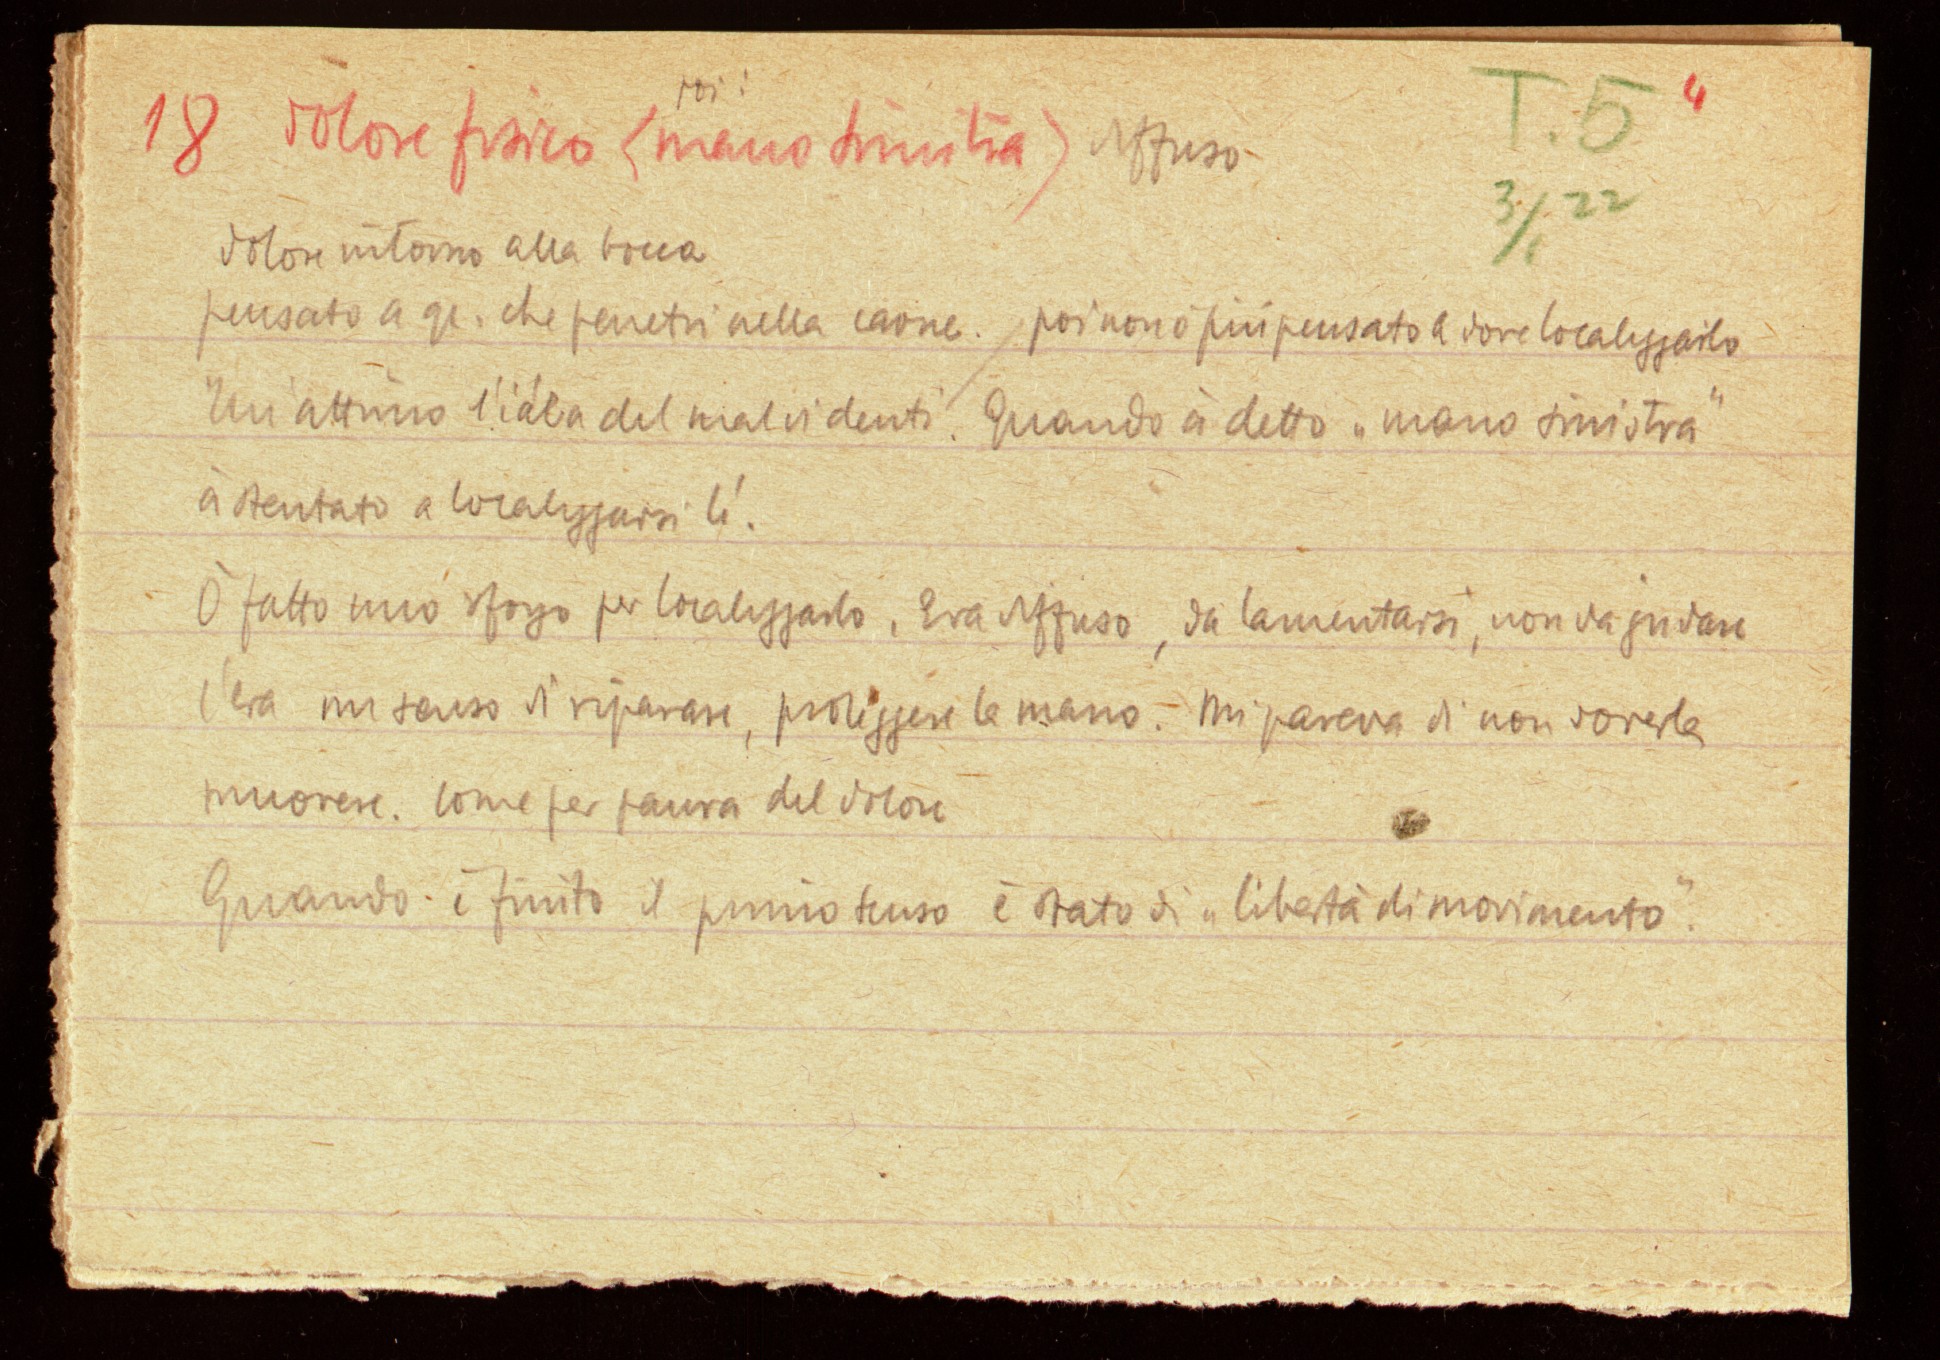 poi:
18 dolore fisico (mano sinistra) diffuso
T. 5 4
3/1 22
dolore intorno alla bocca
pensato a qc. che penetri nella carne. / poi non ò più pensato a dove localizzarlo
"Un attimo l'idea del mal di denti. Quando à detto "mano sinistra"
à stentato a localizzarsi lì.
Ò fatto uno sforzo per localizzarlo. Era diffuso, da lamentarsi, non da gridare
C'era un senso di riparare, proteggere la mano. Mi pareva di non doverla
muovere. Come per paura del dolore
Quando è finito il primo senso è stato di "libertà di movimento".